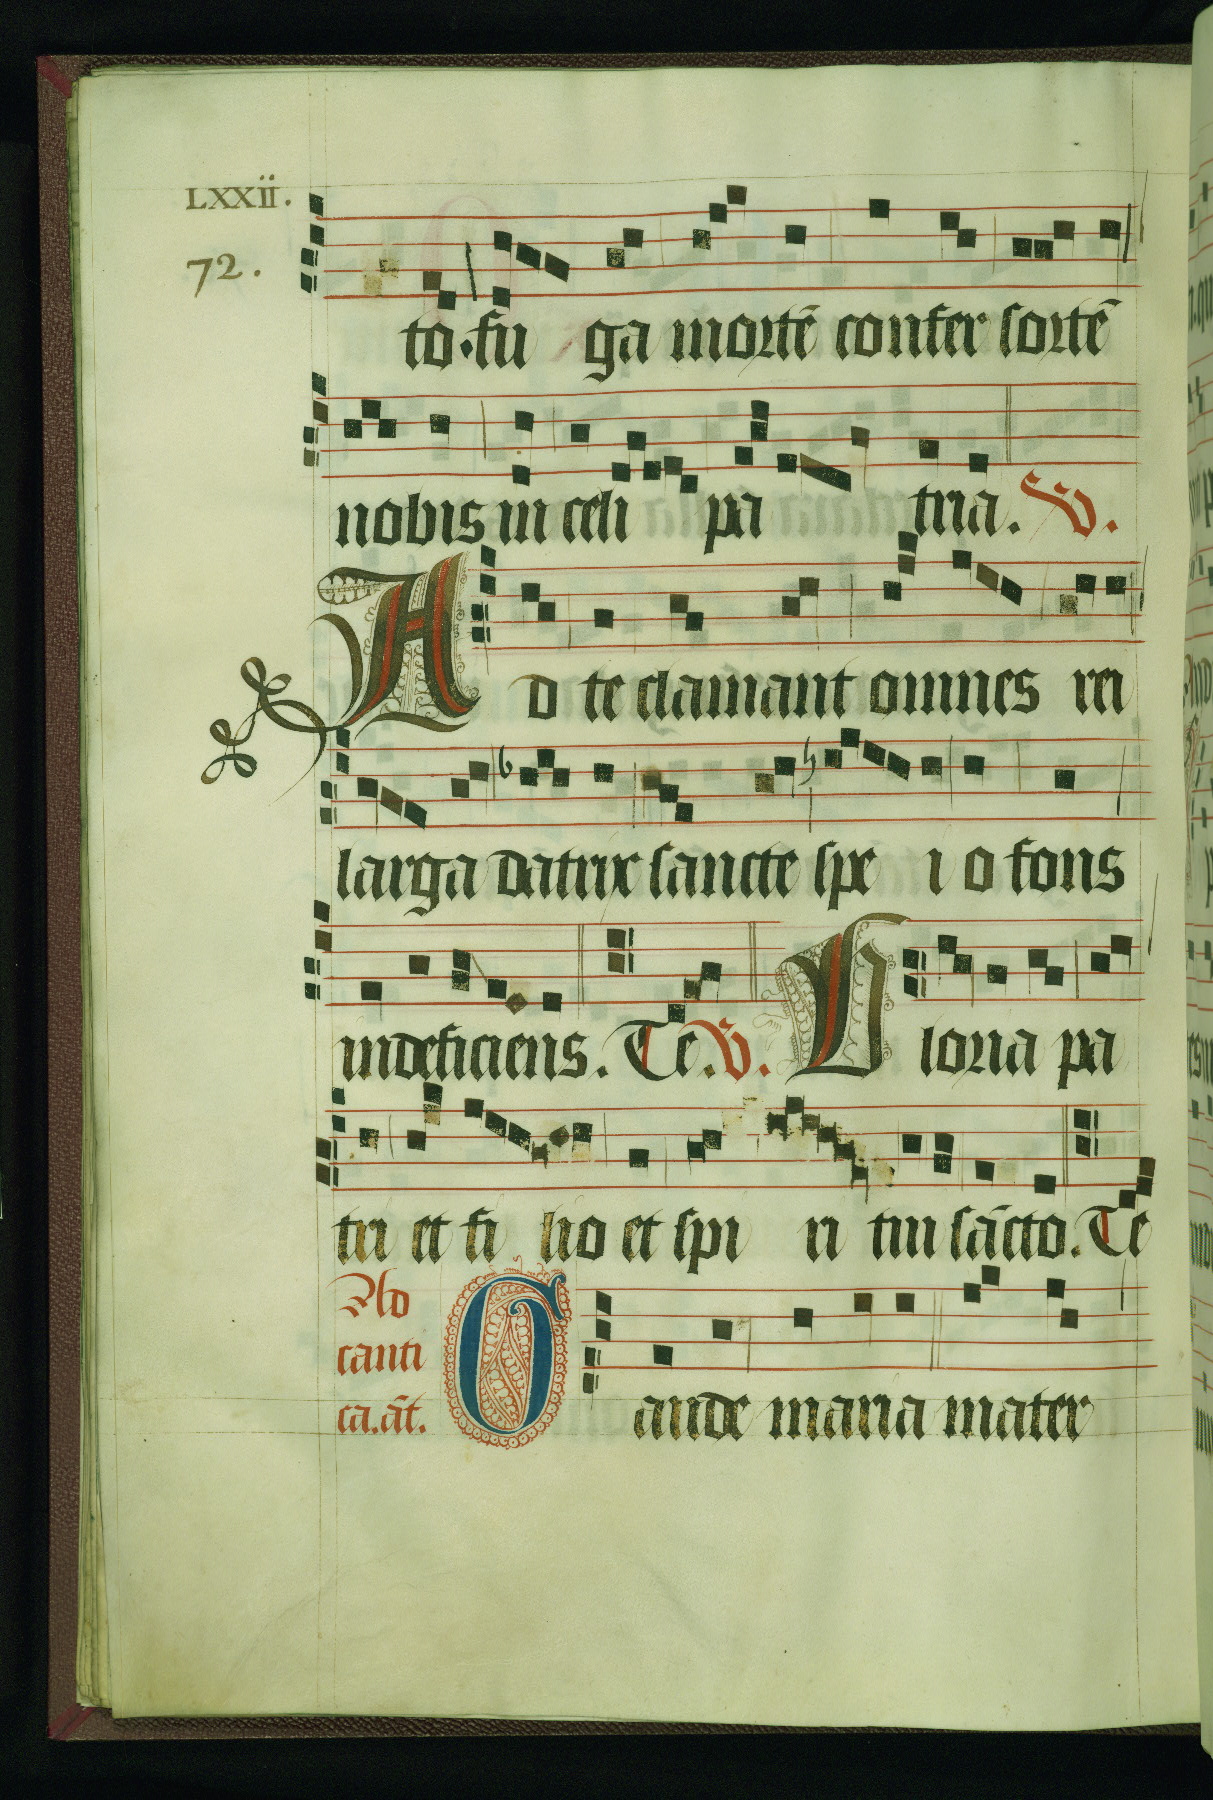 LXXII.
72.
to. fu ga mortē confer sortē
nobis in celi pa tria. V.
A d te clamant omnes rei
larga datrix sancte spe i o fons
indeficiens. Te. V. G loria pa
tri et fi lio et spi ri tui sācto. Te
Ad
canti
ca. āt.
G aude maria mater